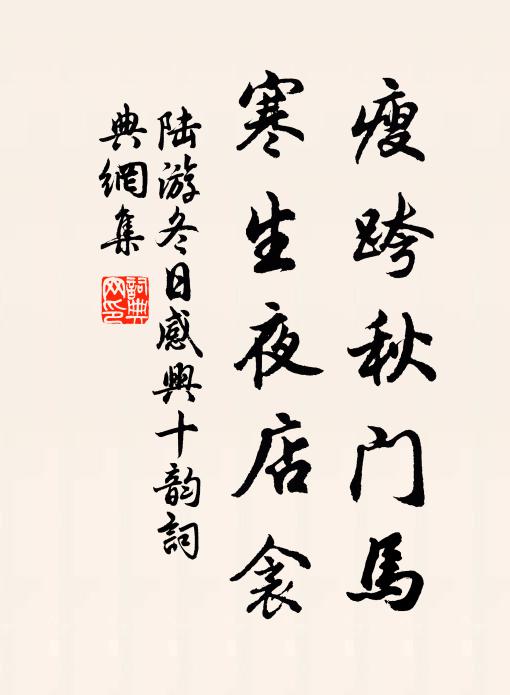 瘦跨秋门馬
寒生夜店衾
陆游冬日感興十韵詞
典網集
詞典
网印